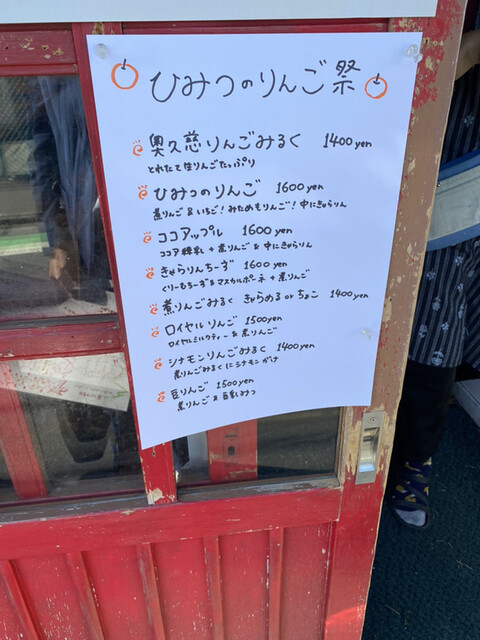 ひみつのりんご祭
奥久慈りんごみるく 1400yen
とれたて生りんごたっぷり
ひみつのりんご 1600yen
煮りんご&いちご!みためもりんご!中にきゃらりん
ココアップル 1600yen
ココア練乳+煮りんご&中にきゃらりん
きゃらりんちーず 1600yen
くりーむちーず&マスカルポーネ+煮りんご
煮りんごみるく きゃらめるorちょこ 1400yen
ロイヤルりんご 1500yen
ロイヤルミルクティー&煮りんご
シナモンりんごみるく 1400yen
煮りんごみるくにシナモンがけ
豆りんご 1500yen
煮りんご&豆乳みつ